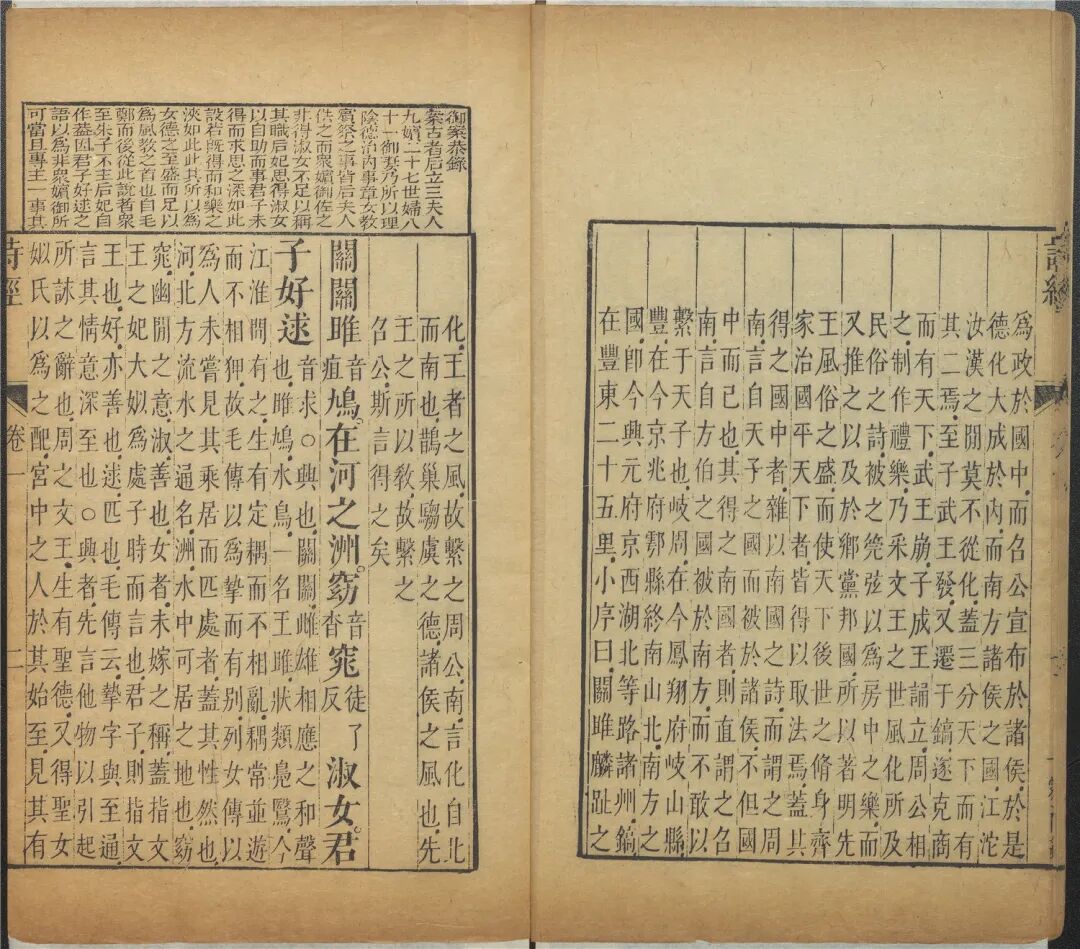 詩經
為政於國中而召公宣布於諸侯於是
德化大成於內而南方諸侯之國江沱
汝漢之閒莫不從化蓋三分天下而有
其二焉至子武王發又遷于鎬遂克商
而有天下武王崩子成王誦立周公相
之制作禮樂乃采文王之世風化所及
民俗之詩被之筦弦以為房中之樂而
又推之以及於鄉黨邦國所以著明先
王風俗之盛而使天下後世之脩身齊
家治國平天下者皆得以取法焉蓋其
得之國中者雜以南國之詩而謂之周
南言自天子之國而被於諸侯不但國
中而已也其得之南國者則直謂之召
南言自方伯之國被於南方而不敢以
繫于天子也岐周在今鳳翔府岐山縣
豐在今京兆府鄠縣終南山北南方之
國卽今興元府京西湖北等路諸州鎬
在豐東二十五里小序曰關雎麟趾之
御案恭錄
案古者后立三夫人
九嬪二十七世婦八
十一御妻乃所以理
陰德治內事章女教
賓祭之事皆后夫人
供之而衆嬪御佐之
非得淑女不足以稱
其職后妃思得淑女
以自助而事君子未
得而求思之深如此
設若既得而和樂之
浹如此此其所以為
女德之至盛而足以
為風教之首也自毛
鄭而後從此說者衆
至朱子不主后妃自
作葢因君子好逑之
語以為非衆嬪御所
可當且專主一事其
化王者之風故繫之周公南言化自北
而南也鵲巢騶虞之德諸侯之風也先
王之所以教故繫之
召公斯言得之矣
關關雎音疽鳩在河之洲窈音杳窕徒了反淑女君
子好逑音求○興也關關雌雄相應之和聲
也雎鳩水鳥一名王雎狀類鳧鷖今
江淮間有之生有定耦而不相亂耦常並遊
而不相狎故毛傳以為摯而有別列女傳以
為人未嘗見其乘居而匹處者蓋其性然也
河北方流水之通名洲水中可居之地也窈
窕幽閒之意淑善也女者未嫁之稱蓋指文
王之妃大姒為處子時而言也君子則指文
王也好亦善也逑匹也毛傳云摯字與至通
言其情意深至也○興者先言他物以引起
所詠之辭也周之文王生有聖德又得聖女
姒氏以為之配宮中之人於其始至見其有
詩經
卷一
二